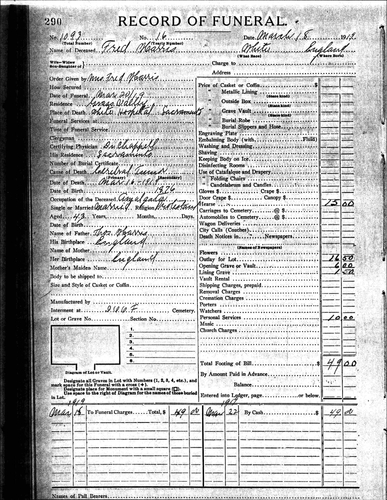 290 RECORD OF FUNERAL.
No. 1093 No. 16 Date March 18 1919
(Total Number) (Yearly Number)
Name of Deceased Fred Harris White England
(What Race) (Where Born)
Charge to
Address
Order Given by Mrs Fred Harris
How Secured
Date of Funeral Mar 20/19
Residence Grass Valley
Place of Death White Hospital, Sacramento
Funeral Services at
Time of Funeral Service
Clergyman
Certifying Physician Dr Chappell
His Residence Sacramento
Number of Burial Certificate
Cause of Death Cerebral Tumor
(Primary) (Secondary)
Date of Death Mar 16 - 1919
Date of Birth 1876
Occupation of the Deceased
Single or Married Married Religion
Aged 43 Years, Months, Days.
Date of Birth
Name of Father Thos Harris
His Birthplace England
Name of Mother
Her Birthplace England
Mother's Maiden Name
Body to be shipped to
Size and Style of Casket or Coffin
Manufactured by
Interment at I.O.O.F. Cemetery.
Lot or Grave No. Section No.
1.
2.
3.
4.
5.
6.
Diagram of Lot or Vault.
Designate all Graves in Lot with Numbers (1, 2, 3, 4, etc.), and
mark space for this Funeral with a cross (+).
Designate place for Monument with a small square
Use space to right of Diagram for names of those buried
in Lot.
Price of Casket or Coffin
Metallic Lining
(State Kind)
Outside Box
(State Kind)
Grave Vault
(State Kind)
Burial Robe
Burial Slippers and Hose
Engraving Plate
Embalming Body (with Fluid)
Washing and Dressing
Shaving
Keeping Body on Ice
Disinfecting Rooms
Use of Catafalque and Drapery
" Folding Chairs
" Candelabrum and Candles
Gloves $ Crape $
Door Crape $ Canopy $
Hearse 15 00
Carriages to Cemetery @ $
Automobiles to Cemetery @ $
Wagon Deliveries
City Calls (Coaches)
Death Notices in Newspapers.
(Names of Newspapers)
Flowers
Outlay for Lot 16 50
Opening Grave or Vault 6 00
Lining Grave 1 50
Vault Rental
Shipping Charges, prepaid
Removal Charges
Cremation Charges
Porters
Watchers
Personal Services 10 00
Music
Church Charges
Total Footing of Bill $ 49 00
By Amount Paid in Advance
Balance
Entered into Ledger, page or below.
1919 1919
Mar 18 To Funeral Charges Total, $ 49 00 Mar 22 By Cash $ 49 00
Names of Pall Bearers